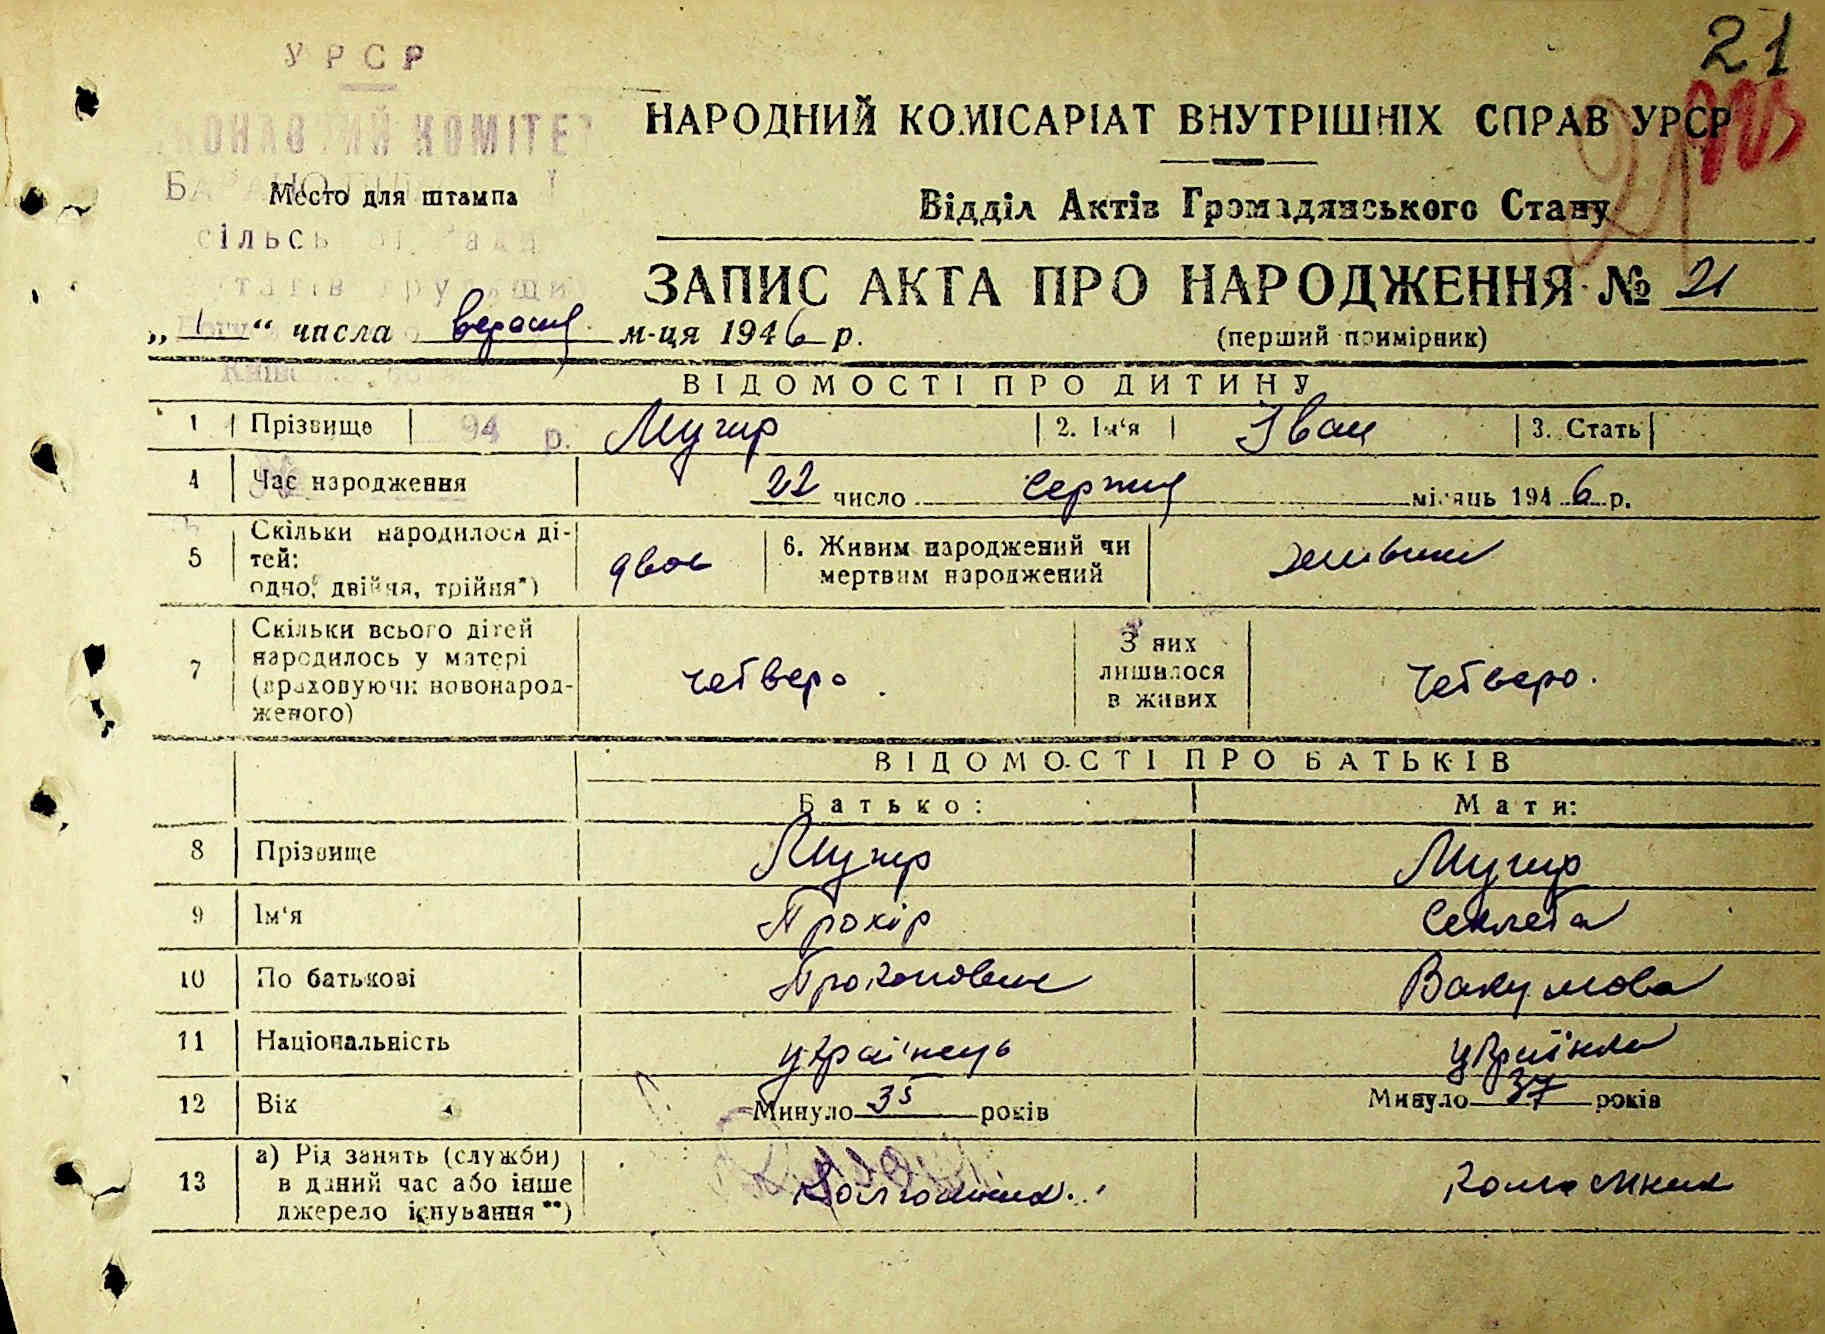 21
УРСР
КОМІТЕТ
Место для штампа
НАРОДНИЙ КОМІСАРІАТ ВНУТРІШНІХ СПРАВ УРСР
Відділ Актів Громадянського Стану
21
ЗАПИС АКТА ПРО НАРОДЖЕННЯ № 21
„ 1 “ числа вересня м-ця 1946 р. (перший примірник)
ВІДОМОСТІ ПРО ДИТИНУ
1 Прізвище Мугир 2. Ім‘я Іван 3. Стать
4 Час народження 22 число серпня місяць 1946 р.
5 Скільки народилося ді-
тей:
одно, двійня, трійня*)
двоє
6. Живим народжений чи
мертвим народжений
живим
7 Скільки всього дітей
народилось у матері
(враховуючи новонарод-
женого)
четверо
З них
лишилося
в живих
четверо.
ВІДОМОСТІ ПРО БАТЬКІВ
Батько: Мати:
8 Прізвище Мугир Мугир
9 Ім‘я Прохір Секлета
10 По батькові Прокопович Вакумова
11 Національність українець українка
12 Вік Минуло 35 років Минуло 37 років
13 а) Рід занять (служби)
в даний час або інше
джерело існування **)
Колгоспник. колгоспник